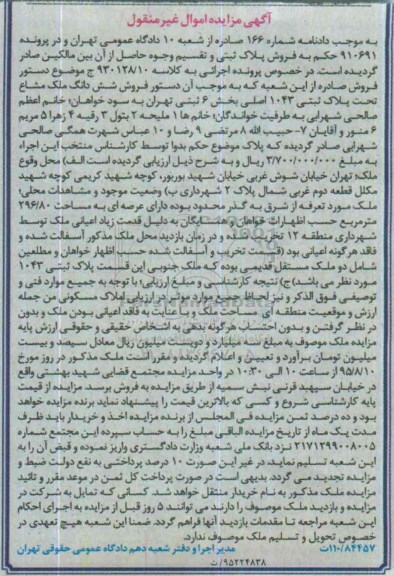 آگهی مزایده اموال غیر منقول
به موجب دادنامه شماره ۱۶۶ صادره از شعبه ۱۰ دادگاه عمومی تهران و در پرونده
۹۱۰۶۹۱ حکم به فروش پلاک ثبتی و تقسیم وجوه حاصل از آن بین مالکین صادر
گردیده است. در خصوص پرونده اجرائی به کلاسه ۹۳۰۱۲۸/۱۰ ج موضوع دستور
فروش صادره از این شعبه که به موجب آن دستور فروش شش دانگ ملک مشاع
تحت پلاک ثبتی ۱۰۴۳ اصلی بخش ۶ ثبتی تهران به سود خواهان: خانم اعظم
صالحی شهرابی به طرفیت خواندگان: خانم ها ۱ ملیحه ۲ بتول ۳ رقیه ۴ زهرا ۵ مریم
۶ منور و آقایان ۷- حبیب الله ۸ مرتضی ۹ رضا و ۱۰ عباس شهرت همگی صالحی
شهرابی صادر گردیده که پلاک موضوع حکم بدوا توسط کارشناس منتخب این اجراء
به مبلغ ۳/۷۰۰/۰۰۰/۰۰۰ ریال و به شرح ذیل ارزیابی گردیده است الف) محل وقوع
ملک: تهران خیابان شوش غربی خیابان شهید بوربور، کوچه شهید کریمی کوچه شهید
مکلل قطعه دوم غربی شمال پلاک ۲ شهرداری ب) وضعیت موجود و مشاهدات محلی:
ملک مورد تعرفه از شرق به گذر محدود بوده دارای عرصه ای به مساحت ۲۹۶/۸۰
مترمربع حسب اظهارات خواهان و همسایگان به دلیل قدمت زیاد اعیانی ملک توسط
شهرداری منطقه ۱۲ تخریب شده و در زمان بازدید محل ملک مذکور آسفالت شده و
فاقد هرگونه اعیانی بود (قسمت تخریب و آسفالت شده حسب اظهار خواهان و مطلعین
شامل دو ملک مستقل قدیمی بوده که ملک جنوبی این قسمت پلاک ثبتی ۱۰۴۳
مورد نظر می باشد) ج) نتیجه کارشناسی و مبلغ ارزیابی: با توجه به جمیع موارد فنی و
توصیفی فوق الذکر و نیز لحاظ جمیع موارد موثر در ارزیابی املاک مسکونی من جمله
ارزش و موقعیت منطقه ای مساحت ملک و با عنایت به فاقد اعیانی بودن ملک و بدون
در نظر گرفتن و بدون احتساب هرگونه بدهی به اشخاص حقیقی و حقوقی ارزش پایه
مزایده ملک موصوف به مبلغ سه میلیارد و دویست میلیون ریال معادل سیصد و بیست
میلیون تومان برآورد و تعیین و اعلام گردیده و مقرر است ملک مذکور در روز مورخ
۹۵/۸/۱۰ از ساعت ۱۰ الی ۱۰:۳۰ در واحد مزایده مجتمع قضایی شهید بهشتی واقع
در خیابان سپهبد قرنی نبش سمیه از طریق مزایده به فروش برسد. مزایده از قیمت
پایه کارشناسی شروع و کسی که بالاترین قیمت را پیشنهاد نماید برنده مزایده خواهد
بود و ده درصد ثمن مزایده فی المجلس از برنده مزایده اخذ و خریدار باید ظرف
مدت یک ماه از تاریخ مزایده الباقی مبلغ را به حساب سپرده این مجتمع شماره
۲۱۷۱۲۹۹۰۰۸۰۰۵ نزد بانک ملی شعبه وزارت دادگستری واریز نموده و قبض آن را به
این شعبه تسلیم نماید، در غیر این صورت ۱۰ درصد پرداختی به نفع دولت ضبط و
مزایده تجدید می گردد. بدیهی است در صورت پرداخت کل ثمن در موعد مقرر و تائید
مزایده ملک مذکور به نام خریدار منتقل خواهد شد. کسانی که تمایل به شرکت در
مزایده و بازدید ملک موصوف را دارند می توانند ۵ روز قبل از مزایده به اجرای احکام
این شعبه مراجعه تا مقدمات بازدید آنها فراهم گردد. ضمنا این شعبه هیچ تعهدی در
خصوص تحویل و تسلیم ملک موصوف ندارد.
۱۱۰/۸۴۴۵۷ت مدیر اجرا و دفتر شعبه دهم دادگاه عمومی حقوقی تهران
۹۵۲۲۴۸۳۸/ت